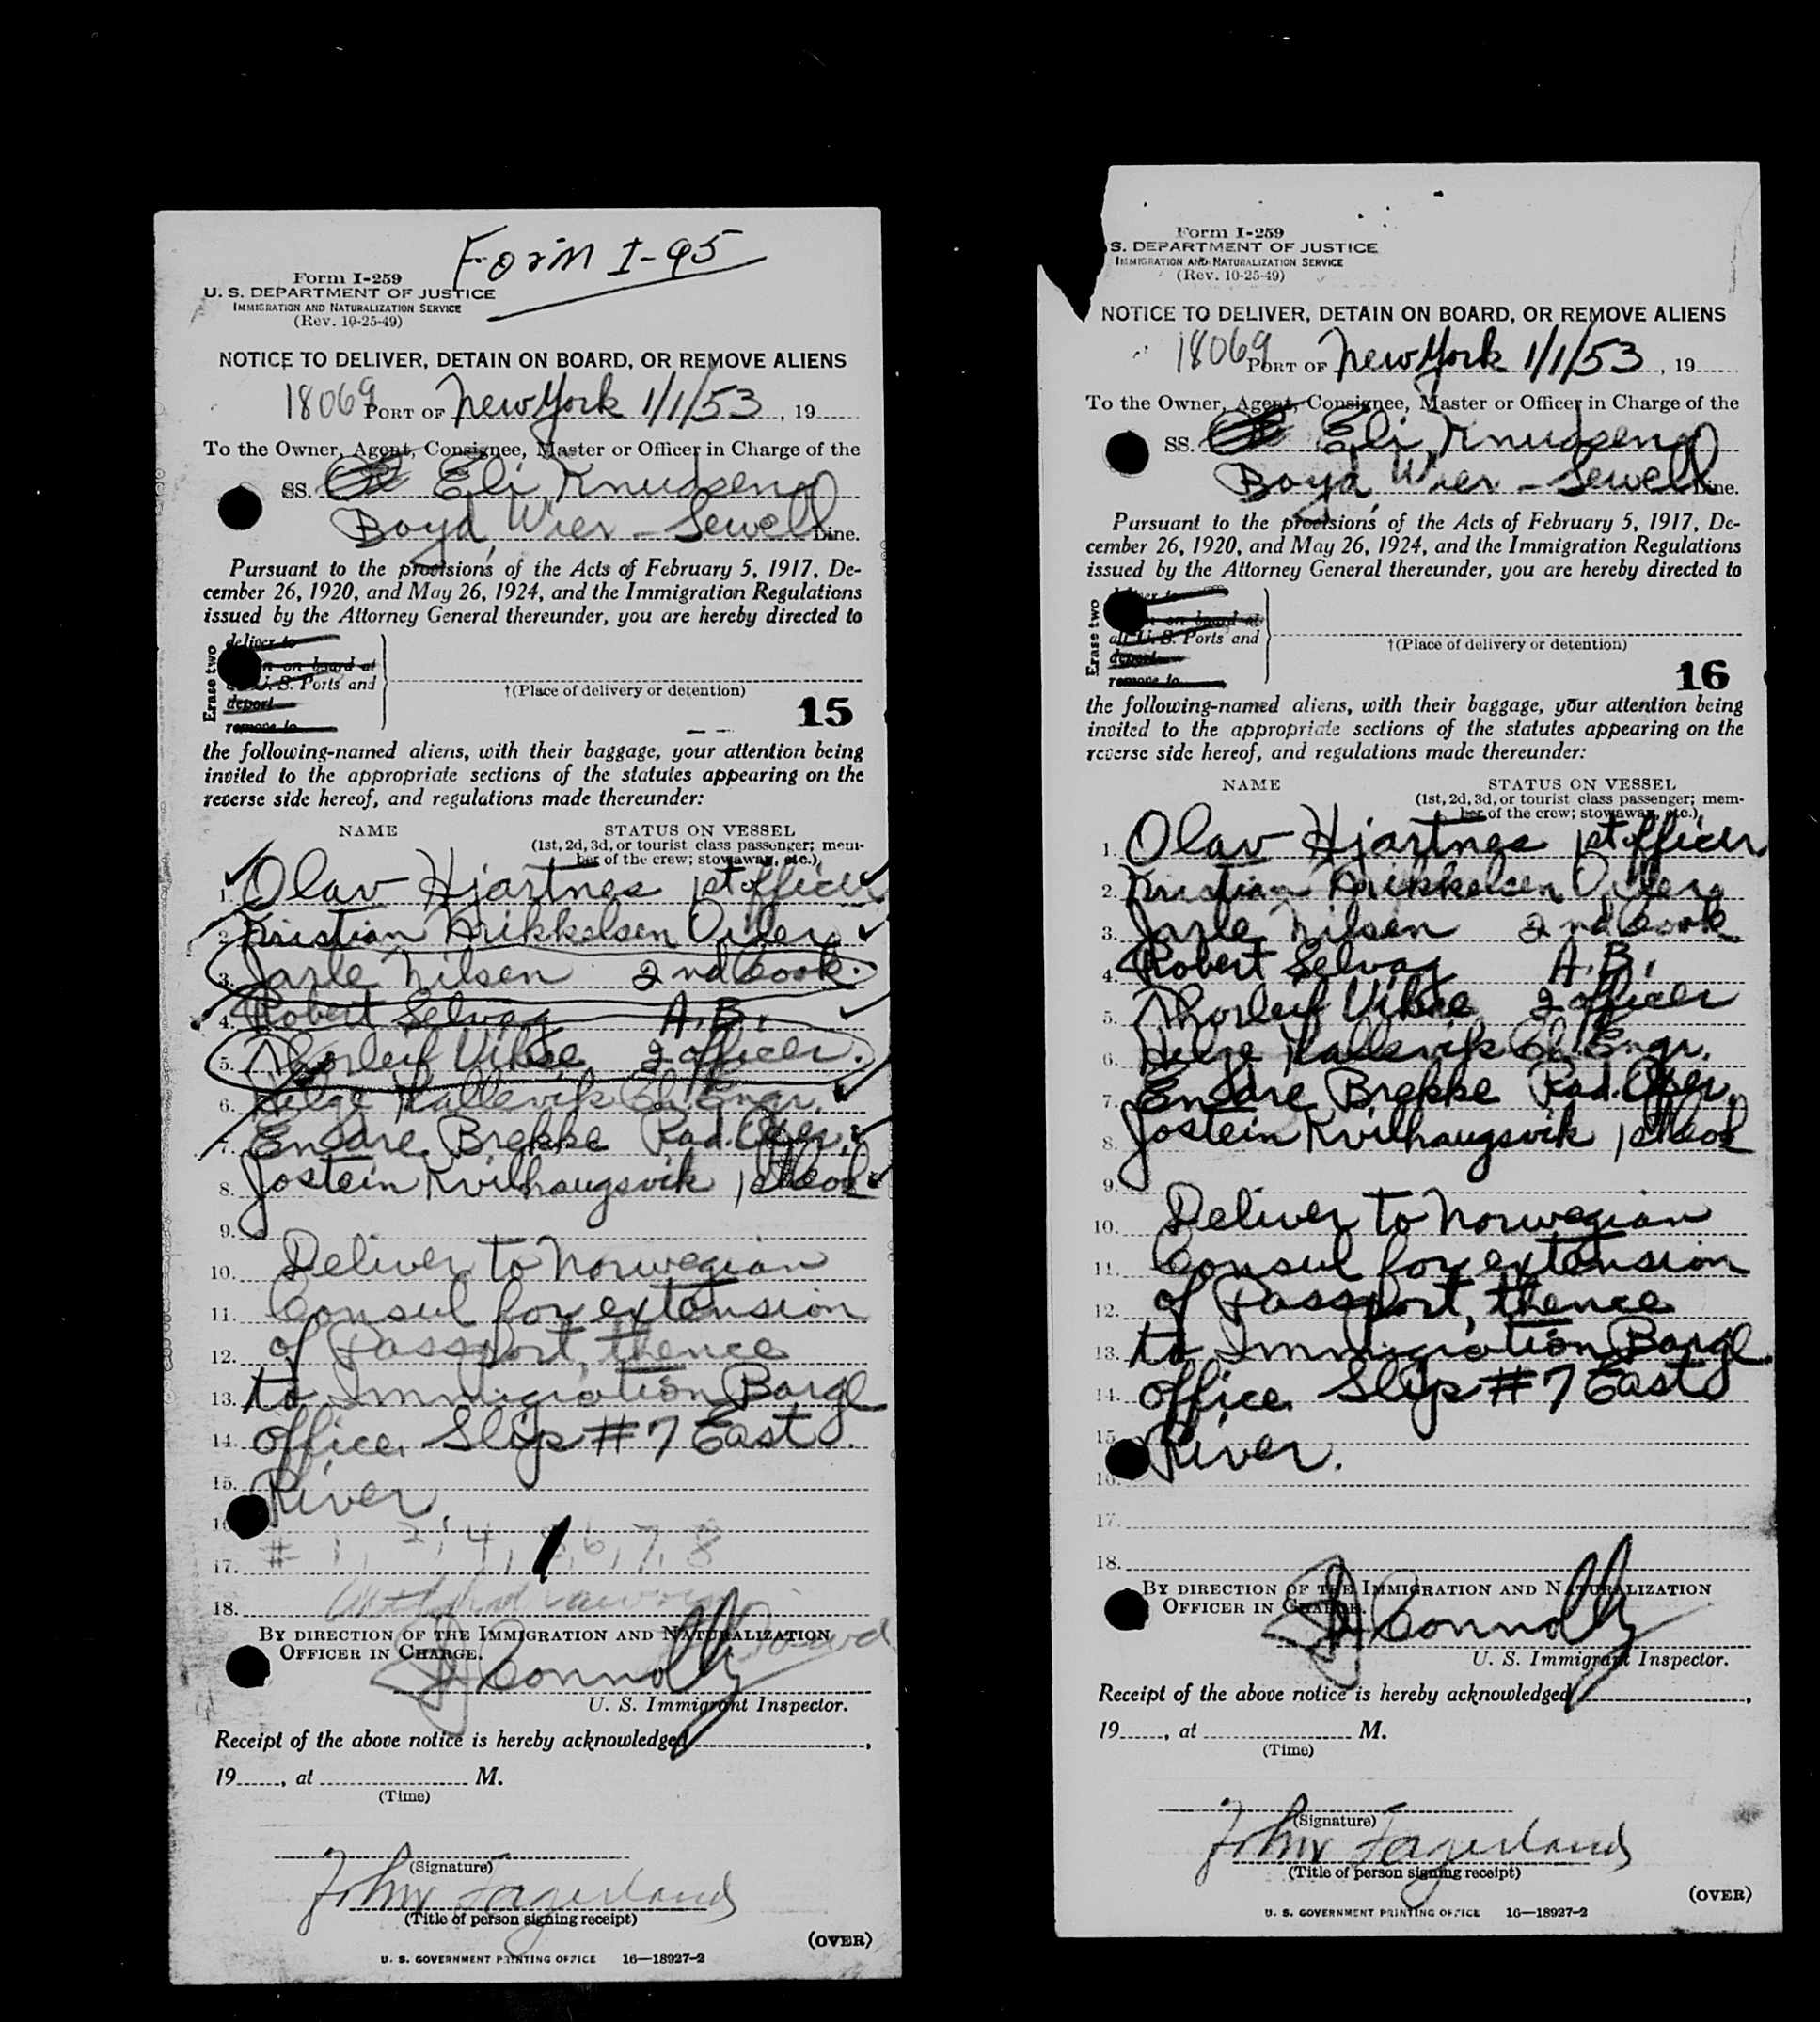 Form I-95
Form I-259
U. S. DEPARTMENT OF JUSTICE
IMMIGRATION AND NATURALIZATION SERVICE
(Rev. 10-25-49)
NOTICE TO DELIVER, DETAIN ON BOARD, OR REMOVE ALIENS
18069 PORT OF New York 1/1/53, 19
To the Owner, Agent, Consignee, Master or Officer in Charge of the
SS. Eli Knudsen
Boyd, Wier - Sewell Line.
Pursuant to the provisions of the Acts of February 5, 1917, De-
cember 26, 1920, and May 26, 1924, and the Immigration Regulations
issued by the Attorney General thereunder, you are hereby directed to
Erase two
deliver to
n on board at
U. S. Ports and
deport
remove to
†(Place of delivery or detention)
15
the following-named aliens, with their baggage, your attention being
invited to the appropriate sections of the statutes appearing on the
reverse side hereof, and regulations made thereunder:
NAME STATUS ON VESSEL
(1st, 2d, 3d, or tourist class passenger; mem-
ber of the crew; stowaway, etc.)
1. Olav Hjartnes 1st officer
2. Kristian Mikkelsen Oiler
3. Jarle Nilsen 2nd Cook.
4. Robert Selvag A.B.
5. Thorleif Vikse 2 officer.
6. Helge Hallsvik Ch. Engr.
7. Endre Brekke Rad. Oper.
8. Jostein Kvilhaugsvik 1st Cook
9.
10. Deliver to Norwegian
11. Consul for extension
12. of Passport, thence
13. to Immigration Barge
14. office Slip # 7 East
15. River.
16
# 1, 2, 4, 6, 7, 8
17.
18.
BY DIRECTION OF THE IMMIGRATION AND NATURALIZATION
OFFICER IN CHARGE.
Connolly
U. S. Immigrant Inspector.
Receipt of the above notice is hereby acknowledged ,
19 , at M.
(Time)
(Signature)
John Fagerland
(Title of person signing receipt)
(OVER)
U. S. GOVERNMENT PRINTING OFFICE 16—18927-2
Form I-259
S. DEPARTMENT OF JUSTICE
IMMIGRATION AND NATURALIZATION SERVICE
(Rev. 10-25-49)
NOTICE TO DELIVER, DETAIN ON BOARD, OR REMOVE ALIENS
18069 PORT OF New York 1/1/53, 19
To the Owner, Agent, Consignee, Master or Officer in Charge of the
SS. Eli Knudsen
Boyd, Wier - Sewell Line.
Pursuant to the provisions of the Acts of February 5, 1917, De-
cember 26, 1920, and May 26, 1924, and the Immigration Regulations
issued by the Attorney General thereunder, you are hereby directed to
Erase two
to
on board at
all U. S. Ports and
deport
remove to
†(Place of delivery or detention)
16
the following-named aliens, with their baggage, your attention being
invited to the appropriate sections of the statutes appearing on the
reverse side hereof, and regulations made thereunder:
NAME STATUS ON VESSEL
(1st, 2d, 3d, or tourist class passenger; mem-
ber of the crew; stowaway, etc.)
1. Olav Hjartnes 1st officer
2. Kristian Mikkelsen Oiler
3. Jarle Nilsen 2nd Cook.
4. Robert Selvag A.B.
5. Thorleif Vikse 2 officer
6. Helge Hallsvik Ch. Engr.
7. Endre Brekke Rad. Oper.
8. Jostein Kvilhaugsvik 1st Cook
9.
10. Deliver to Norwegian
11. Consul for extension
12. of Passport, thence
13. to Immigration Barge
14. office Slip # 7 East
15. River.
16.
17.
18.
BY DIRECTION OF THE IMMIGRATION AND NATURALIZATION
OFFICER IN CHARGE.
Connolly
U. S. Immigrant Inspector.
Receipt of the above notice is hereby acknowledged ,
19 , at M.
(Time)
(Signature)
John Fagerland
(Title of person signing receipt)
(OVER)
U. S. GOVERNMENT PRINTING OFFICE 16—18927-2